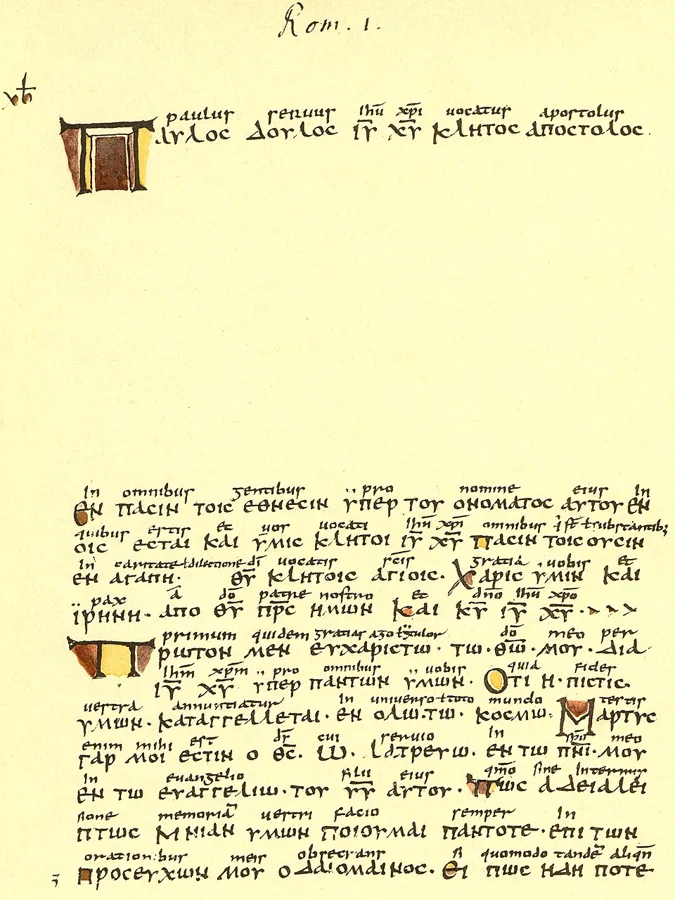 Rom. 1.
paulus seruus ihu xpi uocatus apostolus
ΠΑΥΛΟC ΔΟΥΛΟC ΙΥ ΧΥ ΚΛΗΤΟC ΑΠΟCΤΟΛΟC.
In omnibus gentibus pro nomine eius In
ΕΝ ΠΑCΙΝ ΤΟΙC ΕΘΝΕCΙΝ ΥΠΕΡ ΤΟΥ ΟΝΟΜΑΤΟC ΑΥΤΟΥ ΕΝ
quibus estis et uos uocati ihu xpi omnibus
ΟΙC ΕCΤΑΙ ΚΑΙ ΥΜΙC ΚΛΗΤΟΙ ΙΥ ΧΥ ΠΑCΙΝ ΤΟΙC ΟΥCΙΝ
In caritate dilectione di uocatis scis gratia uobis et
ΕΝ ΑΓΑΠΗ· ΘΥ ΚΛΗΤΟΙC ΑΓΙΟΙC· ΧΑΡΙC ΥΜΙΝ ΚΑΙ
pax a do patre nostro et dno ihu xpo
ΙΡΗΝΗ· ΑΠΟ ΘΥ ΠΡC ΗΜΩΝ ΚΑΙ ΚΥ ΙΥ ΧΥ·
primum quidem gratias ago do meo per
ΠΡΩΤΟΝ ΜΕΝ ΕΥΧΑΡΙCΤΩ· ΤΩ· ΘΩ· ΜΟΥ· ΔΙΑ
ihm xpm pro omnibus uobis quia fides
ΙΥ ΧΥ ΥΠΕΡ ΠΑΝΤΩΝ ΥΜΩΝ· ΟΤΙ Η· ΠΙCΤΙC
uestra annuntiatur In uniuerso toto mundo testis
ΥΜΩΝ· ΚΑΤΑΓΓΕΛΛΕΤΑΙ· ΕΝ ΟΛΩ·ΤΩ· ΚΟCΜΩ· ΜΑΡΤΥC
enim mihi est ds cui seruio In spu meo
ΓΑΡ ΜΟΙ ΕCΤΙΝ Ο ΘC· Ω· ΛΑΤΡΕΥΩ· ΕΝ ΤΩ ΠΝΙ·ΜΟΥ
In euangelio filii eius qmo sine Intermis
ΕΝ ΤΩ ΕΥΑΓΓΕΛΙΩ·ΤΟΥ ΥΥ ΑΥΤΟΥ· ΠΩC ΑΔΕΙΑΛΕΙ
sione memoria uestri facio semper In
ΠΤΩC ΜΝΙΑΝ ΥΜΩΝ ΠΟΙΟΥΜΑΙ ΠΑΝΤΟΤΕ·ΕΠΙ ΤΩΝ
orationibus meis obsecrans si quomodo tande aliqn
ΠΡΟCΕΥΧΩΝ ΜΟΥ Ο ΔΑΙΟΜΑΙΝΟC· ΕΙ ΠΩC ΗΔΗ ΠΟΤΕ